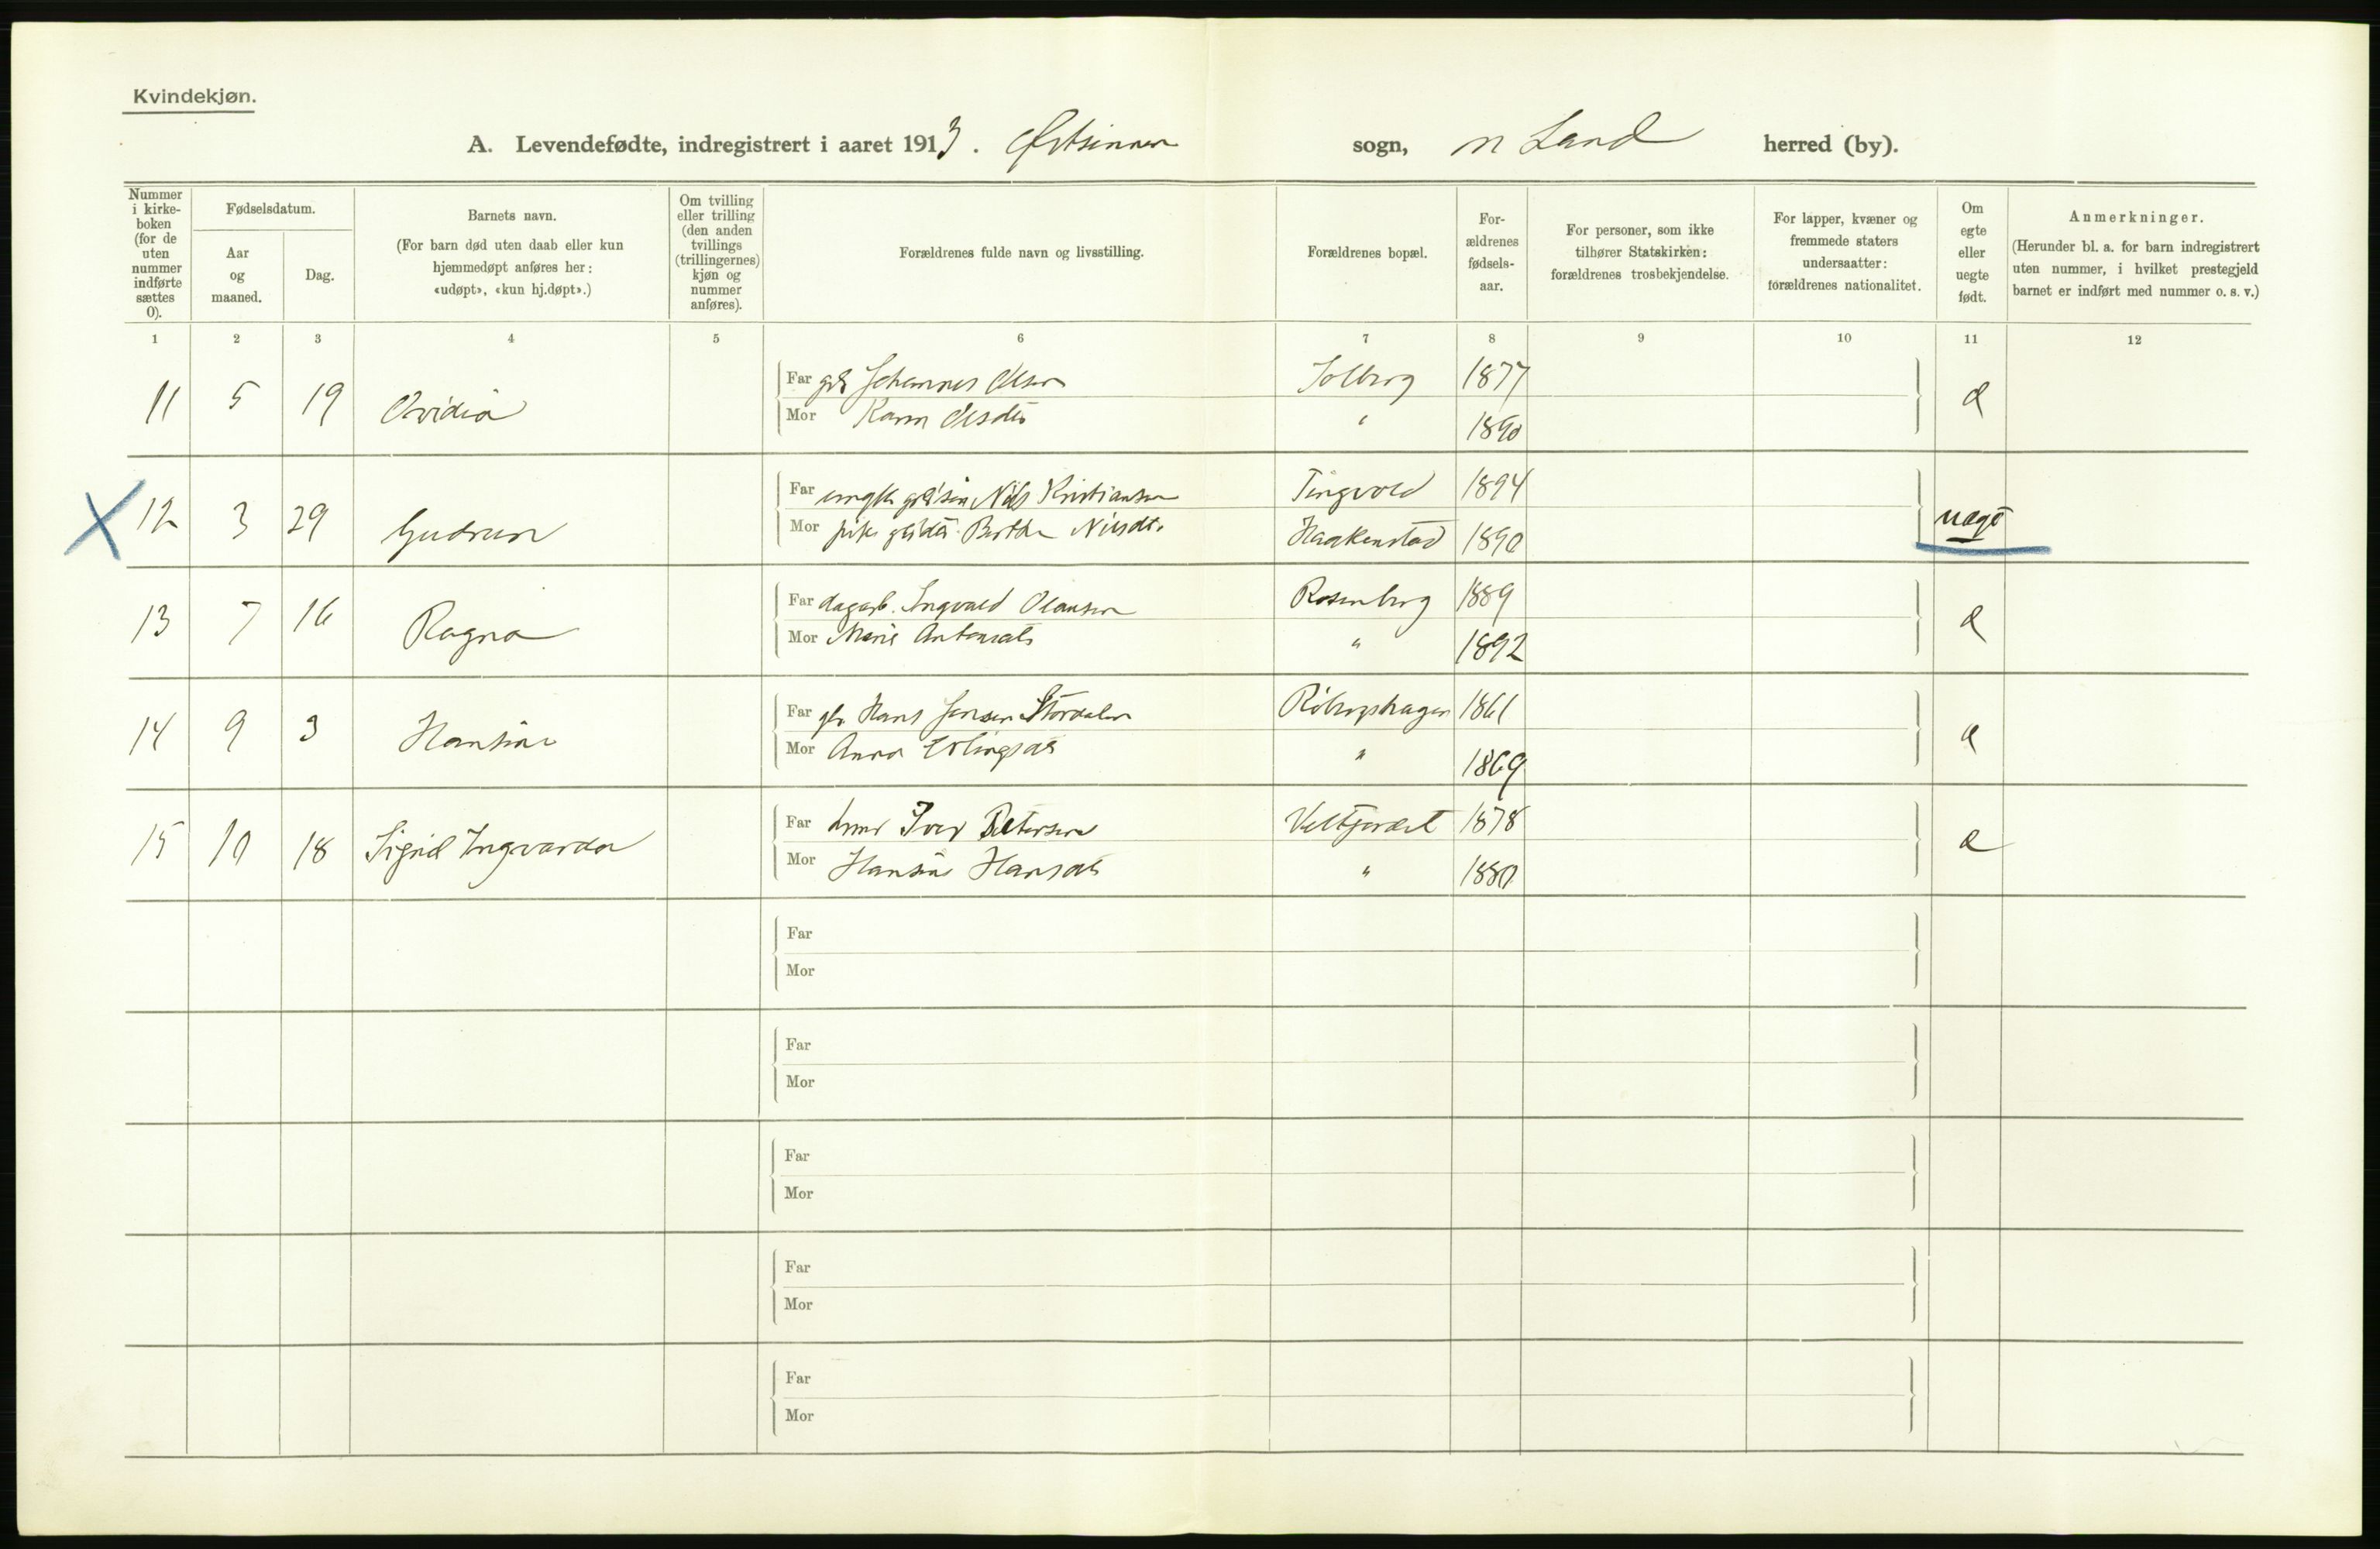 Kvindekjøn.
A. Levendefødte, indregistrert i aaret 1913. Østsinnen sogn, N Land herred (by).
Nummer i kirke-boken (for de uten nummer indførte sættes 0).
Fødselsdatum.
Aar og maaned.
Dag.
Barnets navn.
(For barn død uten daab eller kun hjemmedøpt anføres her: «udøpt», «kun hj.døpt».)
Om tvilling eller trilling (den anden tvillings (trillingernes) kjøn og nummer anføres).
Forældrenes fulde navn og livsstilling.
Forældrenes bopæl.
For-ældrenes fødsels-aar.
For personer, som ikke tilhører Statskirken: forældrenes trosbekjendelse.
For lapper, kvæner og fremmede staters undersaatter: forældrenes nationalitet.
Om egte eller uegte født.
Anmerkninger.
(Herunder bl. a. for barn indregistrert uten nummer, i hvilket prestegjeld barnet er indført med nummer o. s. v.)
1 2 3 4 5 6 7 8 9 10 11 12
Far Johannes Olsen Solberg 1877
11 5 19 Ovidia e
Mor Karen Olsdtr " 1890
Far ungk Nils Kristiansen Tingvold 1894
X 12 3 29 Gudrun uegt
Mor pike Berthe Nilsdtr. Haakenstad 1890
Far dagarb. Ingvald Olausen Rosenberg 1889
13 7 16 Ragna e
Mor Marie Antonsdtr " 1892
Far Hans Jensen Stordalen 1861
14 9 3 Hansine e
Mor Anna Erlingsdtr " 1869
Far Iver Petersen 1878
15 10 18 Sigrid Ingvarda e
Mor Hansine Hansdtr " 1880
Far
Mor
Far
Mor
Far
Mor
Far
Mor
Far
Mor